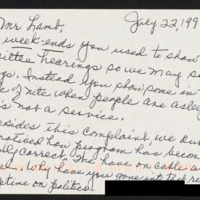 July 22, 199
Mr Lamb,
week-ends you used to show
Hearings so we may s
Instead you show some in
of nite when people are aslee
's not a service.
esides this complaint, we
noticed how program has becom
lly correct. We have on cable a
Why have you gone into that re
on politics.